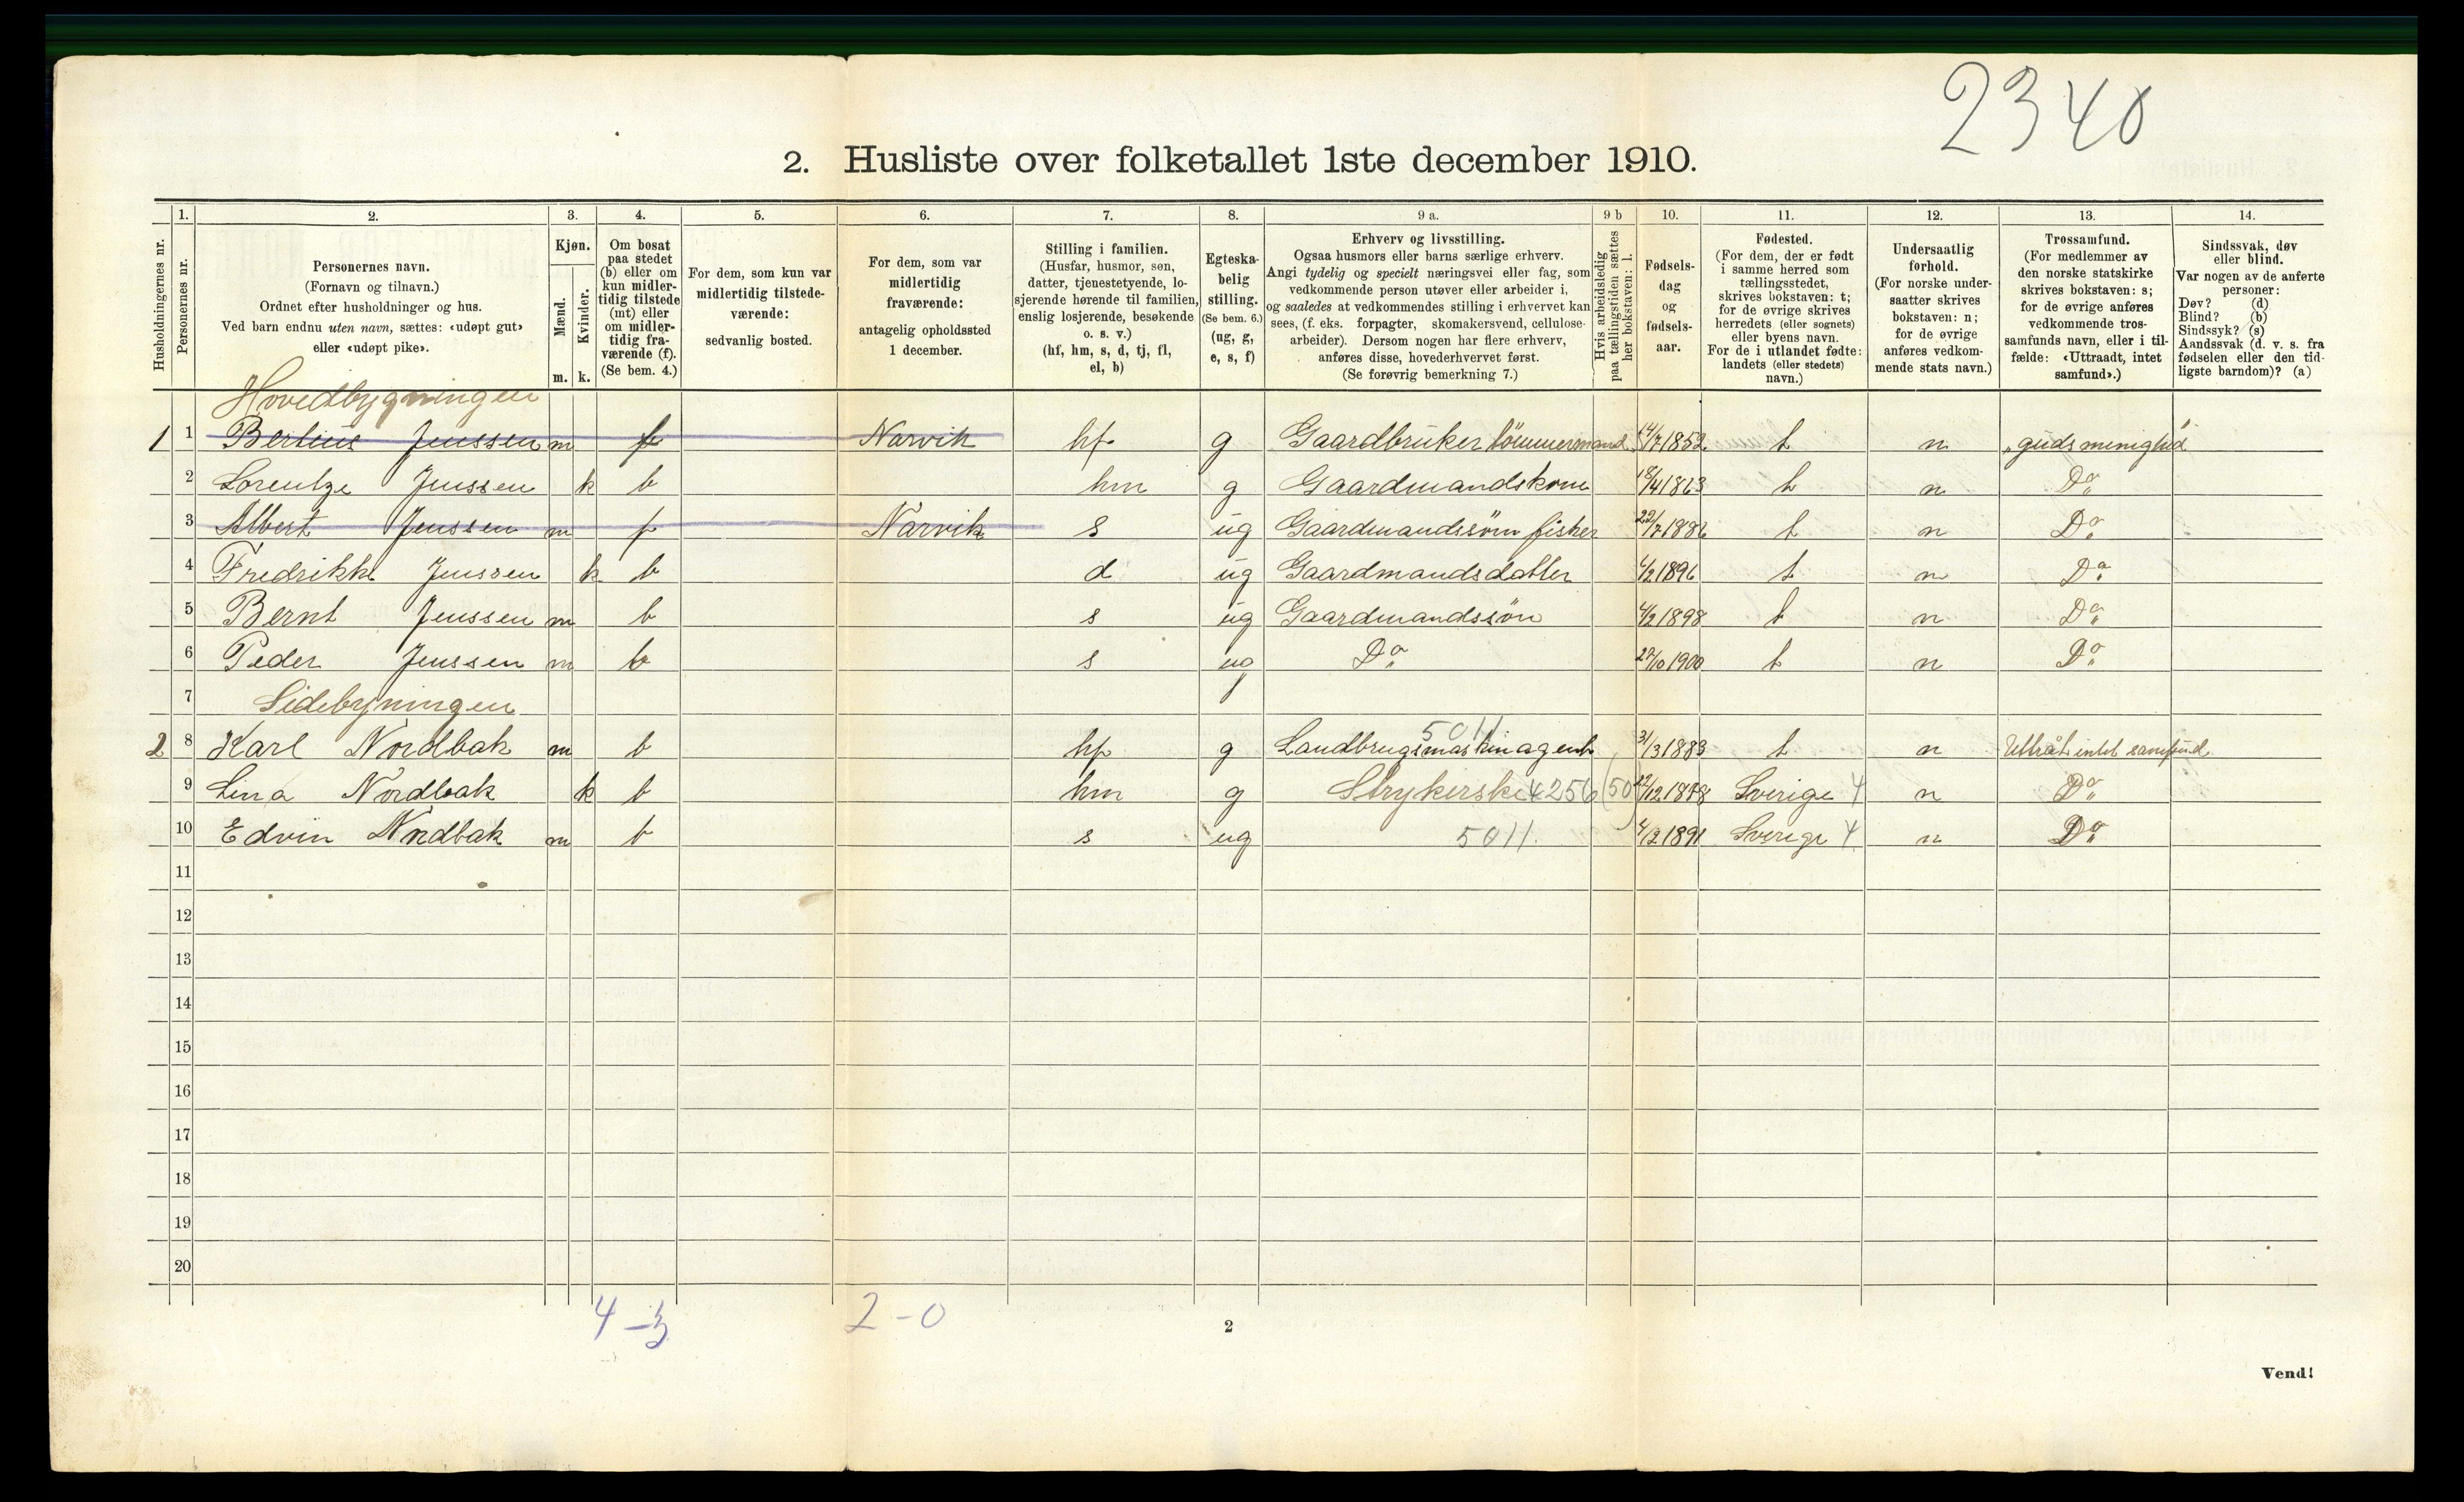 2340
2. Husliste over folketallet 1ste december 1910.
1. 2. 3. 4. 5. 6. 7. 8. 9 a. 9 b 10. 11. 12. 13. 14.
Husholdningernes nr.
Personernes nr.
Personernes navn.
(Fornavn og tilnavn.)
Ordnet efter husholdninger og hus.
Ved barn endnu uten navn, sættes: «udøpt gut»
eller «udøpt pike».
Kjøn.
Mænd.
Kvinder.
m. k.
Om bosat
paa stedet
(b) eller om
kun midler-
tidig tilstede
(mt) eller
om midler-
tidig fra-
værende (f).
(Se bem. 4.)
For dem, som kun var
midlertidig tilstede-
værende:
sedvanlig bosted.
For dem, som var
midlertidig
fraværende:
antagelig opholdssted
1 december.
Stilling i familien.
(Husfar, husmor, søn,
datter, tjenestetyende, lo-
sjerende hørende til familien,
enslig losjerende, besøkende
o. s. v.)
(hf, hm, s, d, tj, fl,
el, b)
Egteska-
belig
stilling.
(Se bem. 6.)
(ug, g,
e, s, f)
Erhverv og livsstilling.
Ogsaa husmors eller barns særlige erhverv.
Angi tydelig og specielt næringsvei eller fag, som
vedkommende person utøver eller arbeider i,
og saaledes at vedkommendes stilling i erhvervet kan
sees, (f. eks. forpagter, skomakersvend, cellulose-
arbeider). Dersom nogen har flere erhverv,
anføres disse, hovederhvervet først.
(Se forøvrig bemerkning 7.)
Hvis arbeidsledig
paa tællingstiden sættes
her bokstaven: l.
Fødsels-
dag
og
fødsels-
aar.
Fødested.
(For dem, der er født
i samme herred som
tællingsstedet,
skrives bokstaven: t;
for de øvrige skrives
herredets (eller sognets)
eller byens navn.
For de i utlandet fødte:
landets (eller stedets)
navn.)
Undersaatlig
forhold.
(For norske under-
saatter skrives
bokstaven: n;
for de øvrige
anføres vedkom-
mende stats navn.)
Trossamfund.
(For medlemmer av
den norske statskirke
skrives bokstaven: s;
for de øvrige anføres
vedkommende tros-
samfunds navn, eller i til-
fælde: «Uttraadt, intet
samfund».)
Sindssvak, døv
eller blind.
Var nogen av de anførte
personer:
Døv? (d)
Blind? (b)
Sindssyk? (s)
Aandssvak (d. v. s. fra
fødselen eller den tid-
ligste barndom)? (a)
Hovedbygningen
1 1 Bertius Jenssen m f Narvik hf g Gaardbruker tömmermand 14/7 1852 t n „guds menighed"
2 Lorentze Jenssen k b hm g Gaardmandskone 18/4 1863 t n Do
3 Albert Jenssen m f Narvik s ug Gaardmandssön fisker 22/7 1886 t n Do
4 Fredrikke Jenssen k b d ug Gaardmandsdatter 4/2 1896 t n Do
5 Bernt Jenssen m b s ug Gaardmandssön 4/2 1898 t n Do
6 Peder Jenssen m b s ug Do 22/10 1900 t n Do
7 Sidebyningen
5011
2 8 Karl Nordbak m b hf g Landbrugsmaskinagent 31/3 1883 t n Uttråt intet samfund
9 Lina Nordbak k b hm g Strykerske 4256 (50) 22/12 1878 Sverige 4 n Do
10 Edvin Nordbak m b s ug 5011. 4/2 1891 Sverige 4 n Do
11
12
13
14
15
16
17
18
19
20
4-3 2-0
2
Vend!